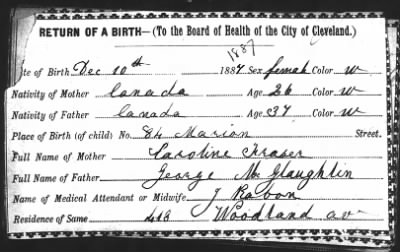 RETURN OF A BIRTH—(To the Board of Health of the City of Cleveland.)
1887
te of Birth Dec 10th 1887 Sex female Color W
Nativity of Mother Canada Age 26 Color W
Nativity of Father Canada Age 37 Color W
Place of Birth (of child) No. 84 Marion Street.
Full Name of Mother Caroline Fraser
Full Name of Father George McGlaughlin
Name of Medical Attendant or Midwife J Rabon
Residence of Same Woodland av